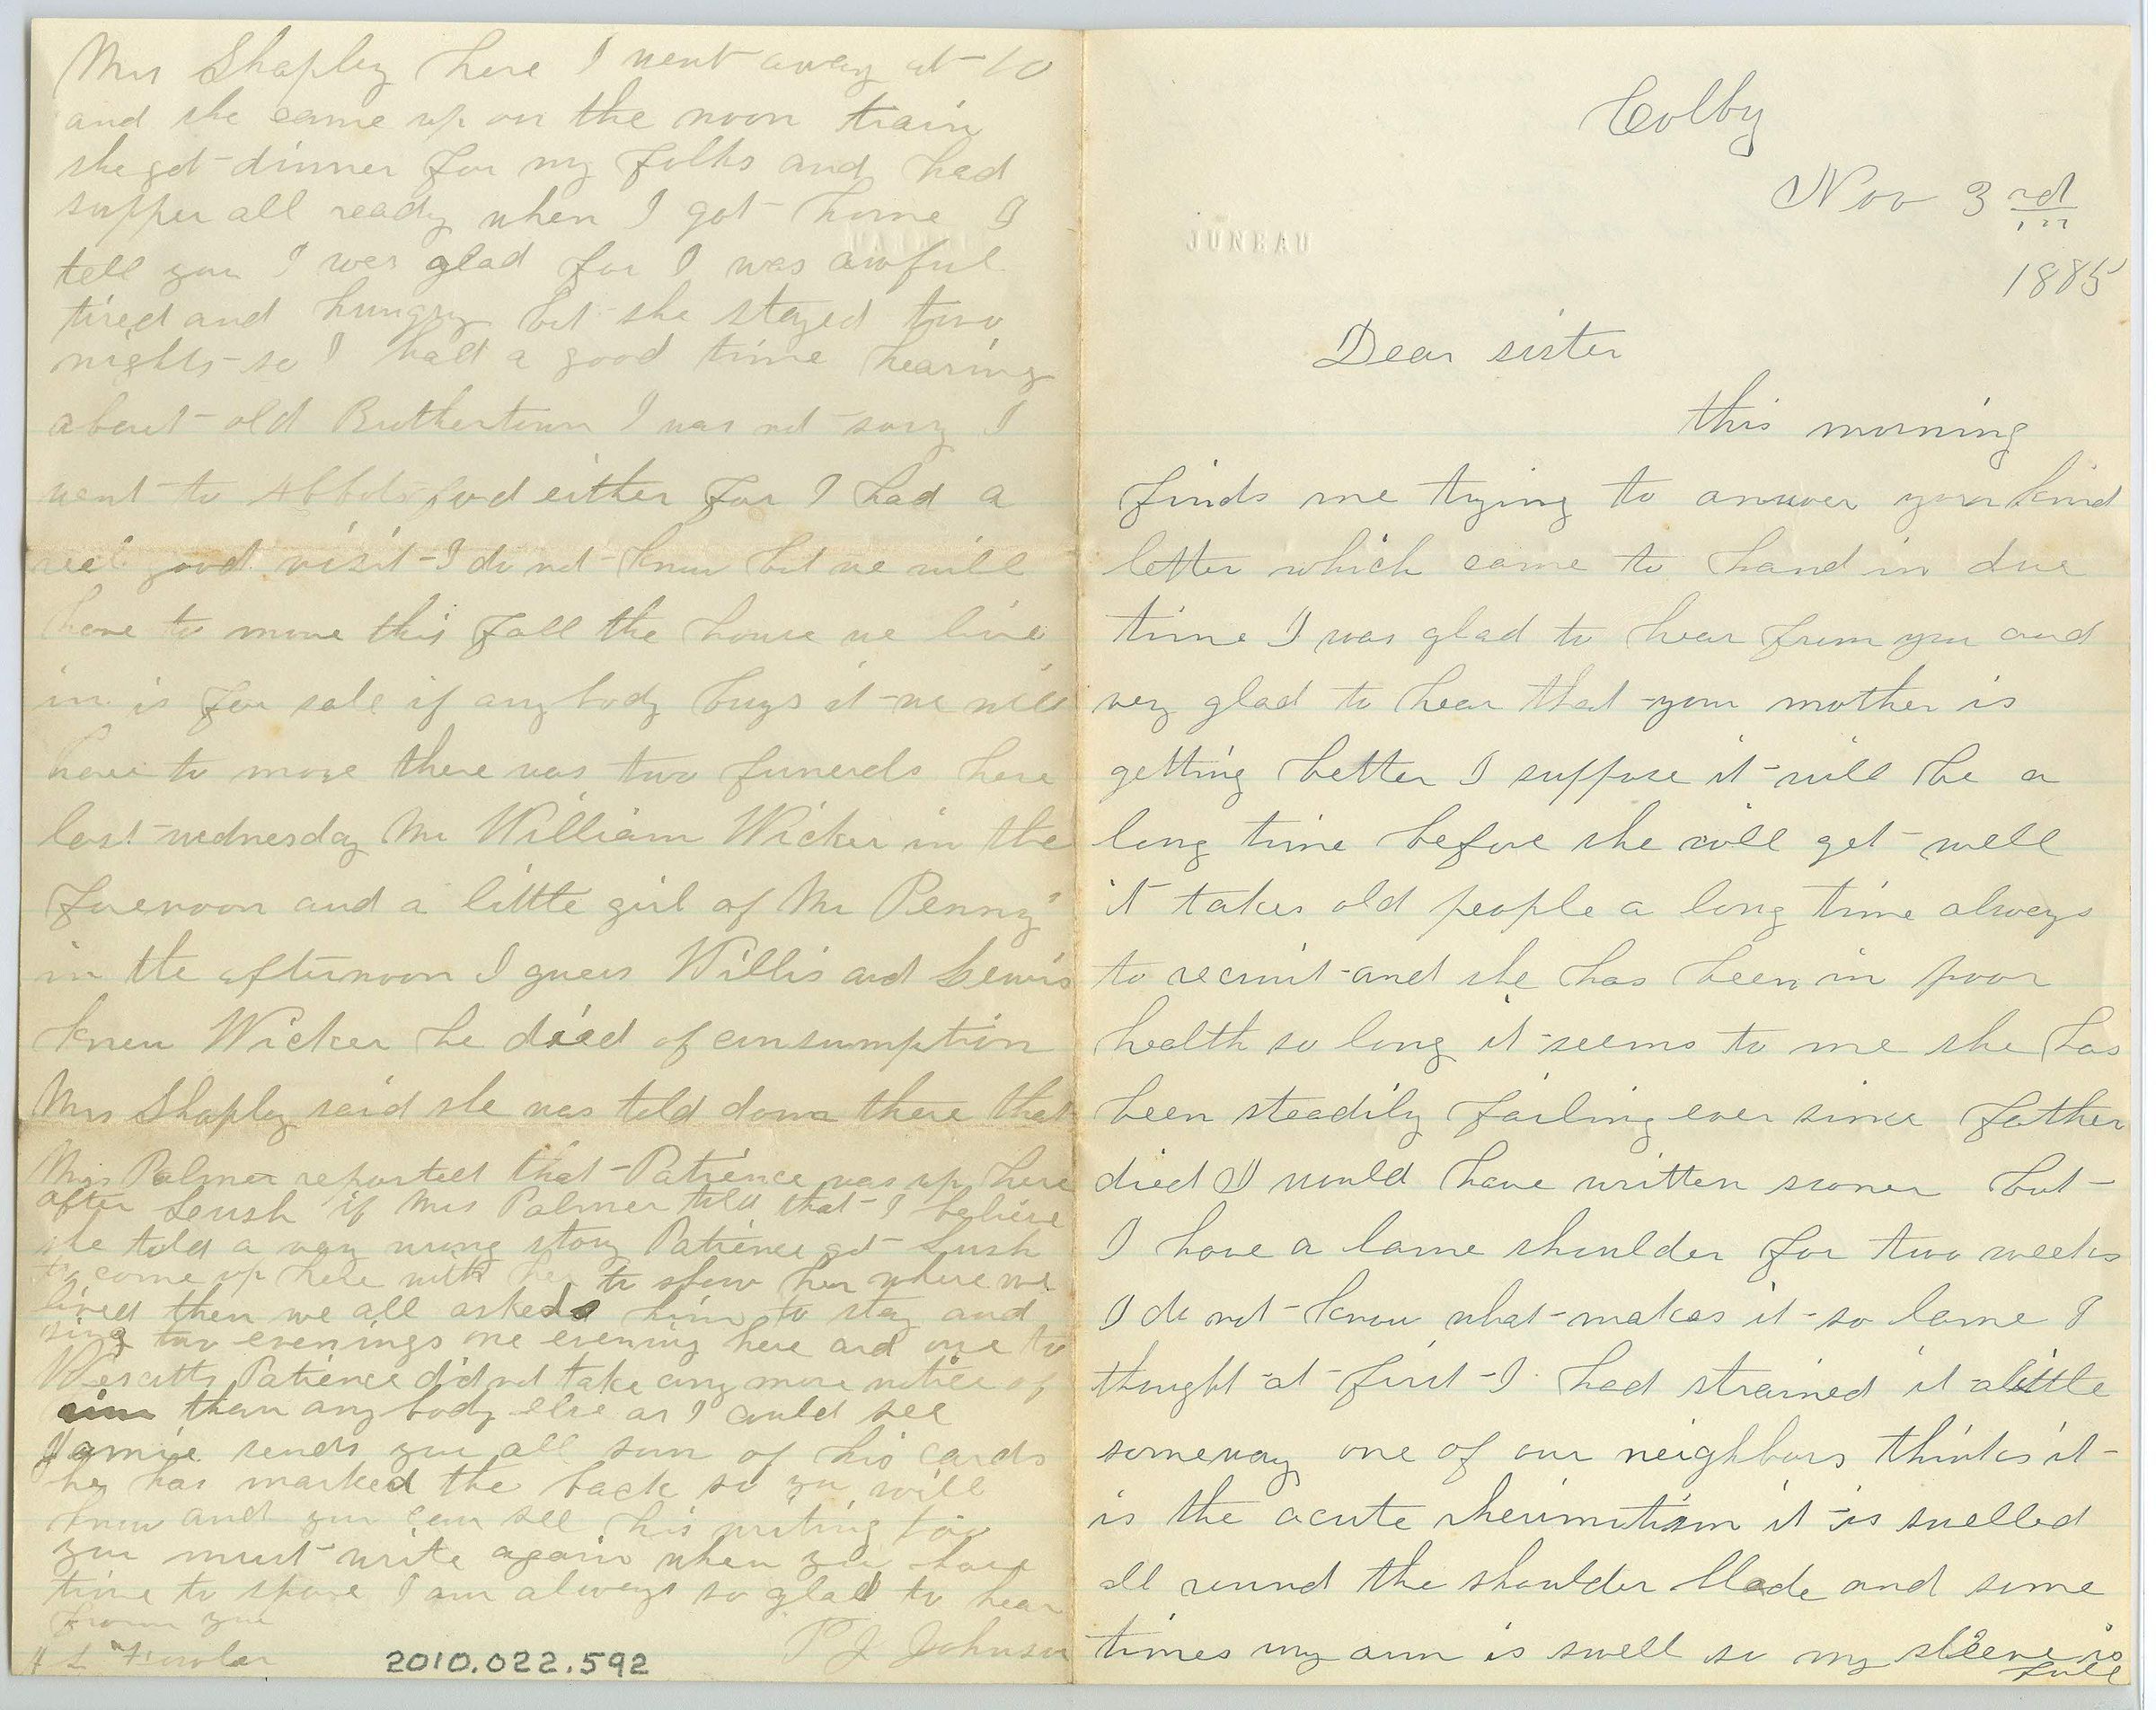 Colby
Nov 3rd
1885
JUNEAU
Dear sister
this morning
finds me trying to answer your kind
letter which came to hand in due
time I was glad to hear from you and
very glad to hear that your mother is
getting better I suppose it will be a
long time before she will get well
it takes old people a long time always
to recruit and she has been in poor
health so long it seems to me she has
been steadily failing ever since father
died I would have written sooner but
I have a lame shoulder for two weeks
I do not know what makes it so lame I
thought at first I had strained it a little
someway one of our neighbors thinks it
is the acute rheumitism it is swelled
all round the shoulder blade and some
times my arm is swell so my sleeve is
full
Mrs Shapley here I went away at 10
and she came up on the noon train
she got dinner for my folks and had
supper all ready when I got home I
tell you I was glad for I was awful
tired and hungry but she stayed two
nights so I had a good time hearing
about old Brothertown I was not sorry I
went to Abbotsford either for I had a
reel good visit I do not know but we will
have to move this fall the house we live
in is for sale if any body buys it we will
have to move there was two funerels here
last wednesday Mr William Wicker in the
forenoon and a little girl of Mr Penny's
in the afternoon I guess Willis and Lewis
knew Wicker he died of consumption
Mrs Shapley said she was told down there that
Mrs Palmer reported that Patience was up here
after Lush if Mrs Palmer told that I believe
she told a very wrong story Patience got Lush
to come up here with her to show her where we
lived then we all asked him to stay and
sing two evenings one evening here and one to
Wescotts Patience did not take any more notice of
him than any body else as I could see
Jamie sends you all som of his cards
he has marked the back so you will
know and you can see his writing too
you must write again when you have
time to spare I am always so glad to hear
from you
P J Johnson
H L Fowler
2010.022.592